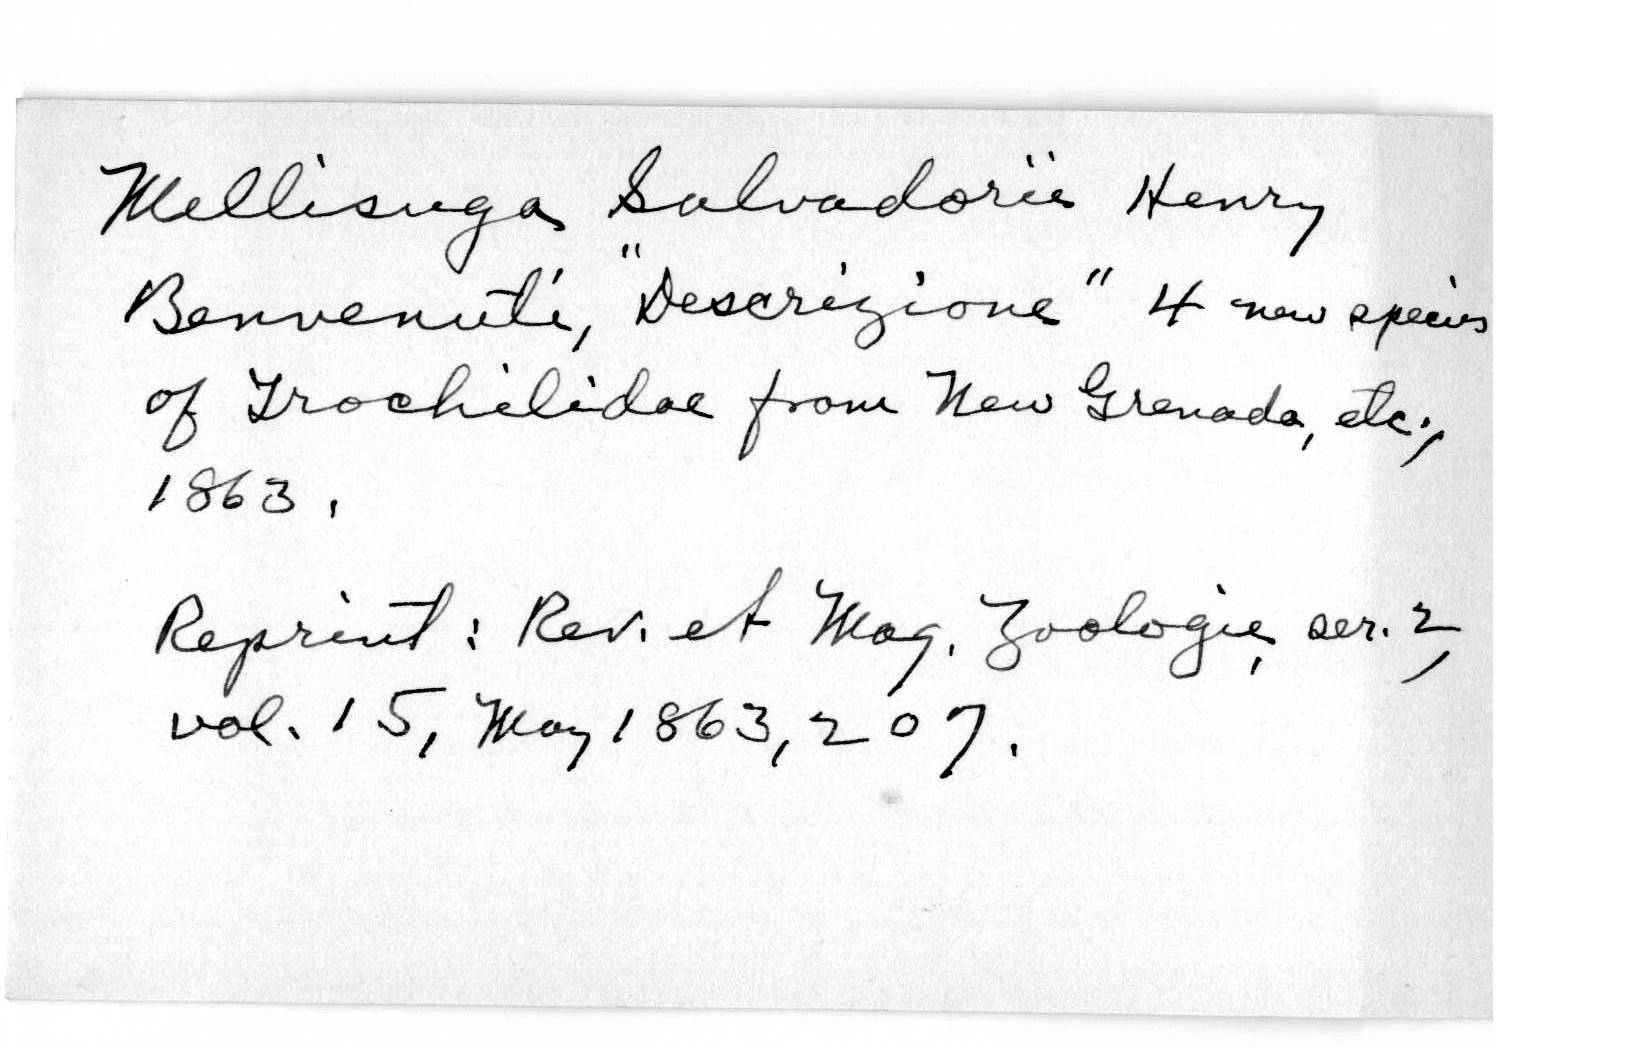 Mellisuga Salvadorii Henry
Benvenuti, "Descrizione" 4 new species
of Trochilidae from New Grenada, etc.,
1863.
Reprint: Rev. et Mag. Zoologie, ser. 2,
vol. 15, May 1863, 207.